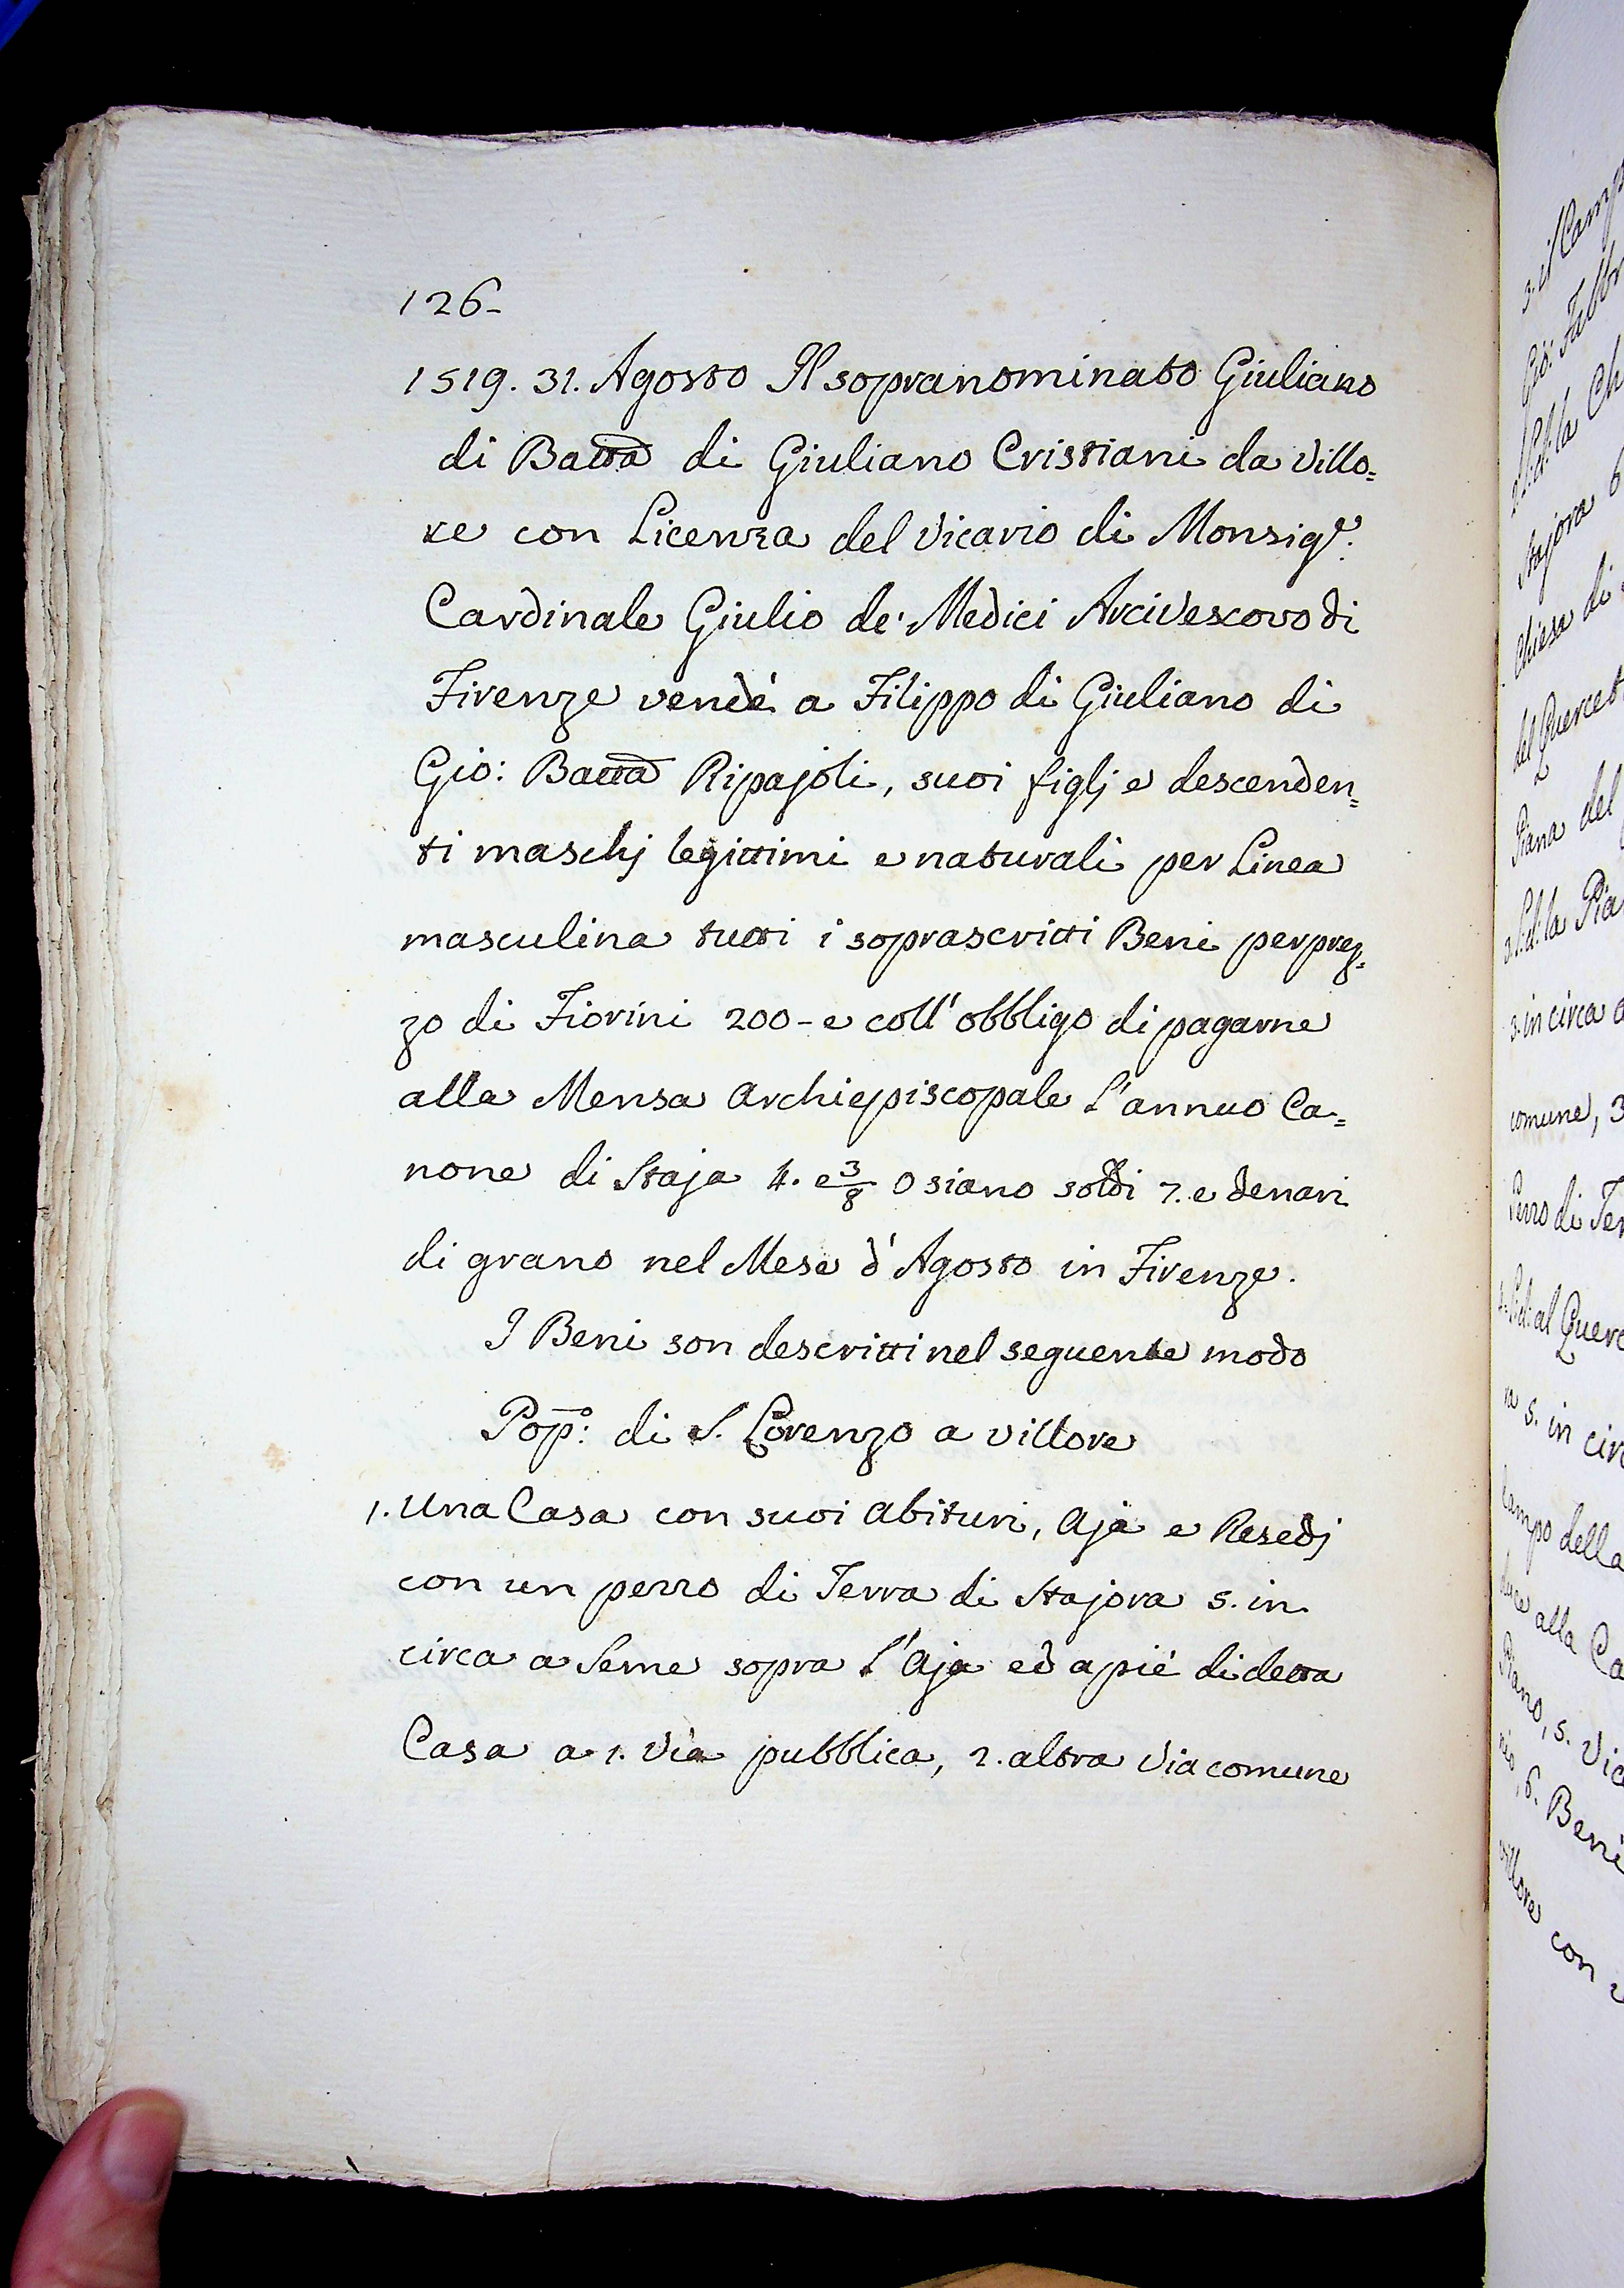 126-
1519. 31. Agosto Il sopranominato Giuliano
di Batta di Giuliano Cristiani da Villo=
re con Licenza del Vicario di Monsigr.
Cardinale Giulio de' Medici Arcivescovo di
Firenze vendé a Filippo di Giuliano di
Gio: Batta Ripajoli, suoi figlj e descenden=
ti maschj legittimi e naturali per Linea
masculina tutti i soprascritti Beni per prez=
zo di Fiorini 200- e coll' obbligo di pagarne
alla Mensa Archiepiscopale l'annuo Ca=
none di Staja 4. e 3/8 o siano soldi 7. e denari
di grano nel Mese d'Agosto in Firenze.
I Beni son descritti nel seguente modo
Popo: di S. Lorenzo a Villore
1. Una Casa con suoi abituri, Aja e Resedj
con un pezzo di Terra di Stajora 5. in
circa a Seme sopra l'Aja ed a pié di detta
Casa a 1. Via pubblica, 2. altra Via comune
3. il Camp
Gio: Fabbr
la Ch
Stajora 6
Chiesa di
del Querceto
Piana del
la Pia
in circa a
comune, 3
Pezzo di Ter
al Querc
5. in circ
Campo della
alla Ca
Piano, 5. Via
6. Beni
Villore con